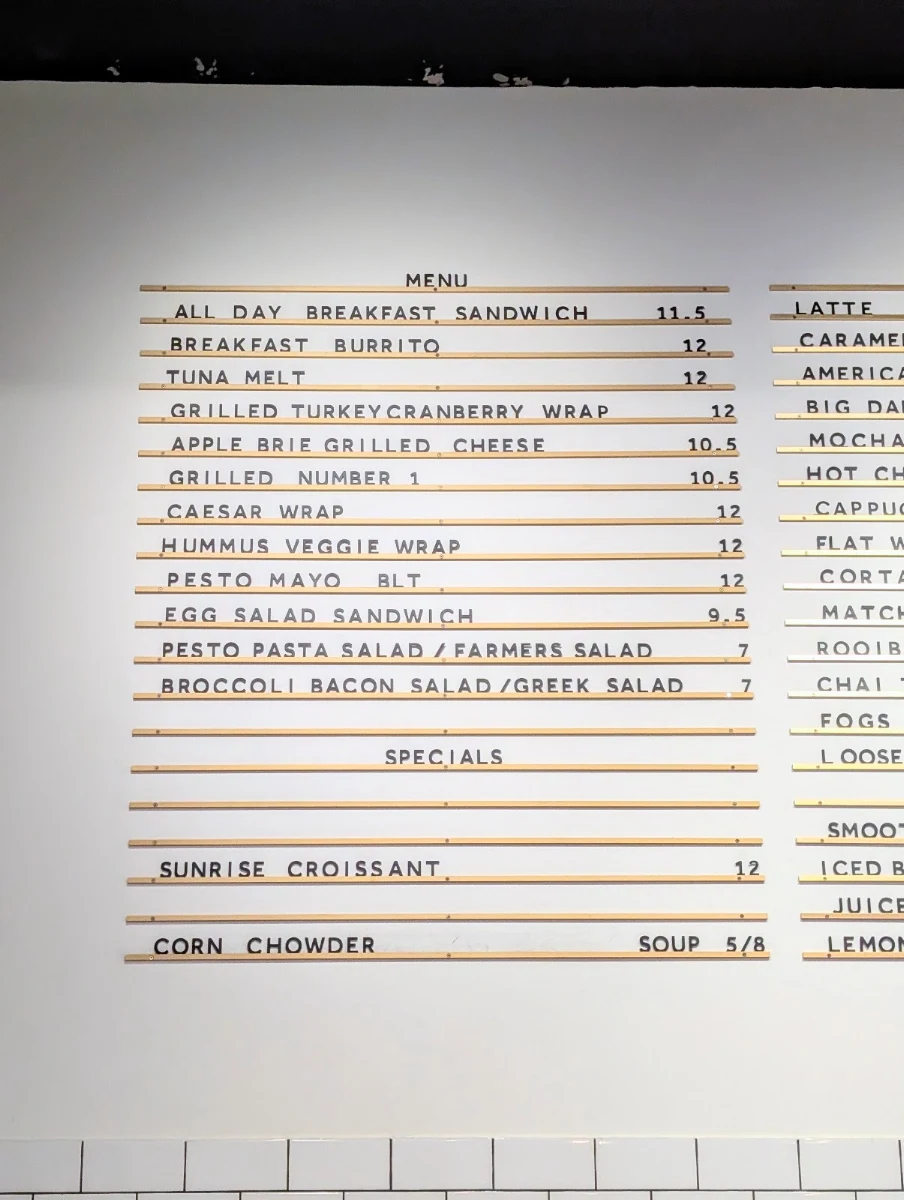 MENU
ALL DAY BREAKFAST SANDWICH 11.5
BREAKFAST BURRITO 12
TUNA MELT 12
GRILLED TURKEYCRANBERRY WRAP 12
APPLE BRIE GRILLED CHEESE 10.5
GRILLED NUMBER 1 10.5
CAESAR WRAP 12
HUMMUS VEGGIE WRAP 12
PESTO MAYO BLT 12
EGG SALAD SANDWICH 9.5
PESTO PASTA SALAD / FARMERS SALAD 7
BROCCOLI BACON SALAD /GREEK SALAD 7
SPECIALS
SUNRISE CROISSANT 12
CORN CHOWDER SOUP 5/8
LATTE
BIG
MOCHA
HOT
FLAT
CHAI
FOGS
LOOSE
ICED